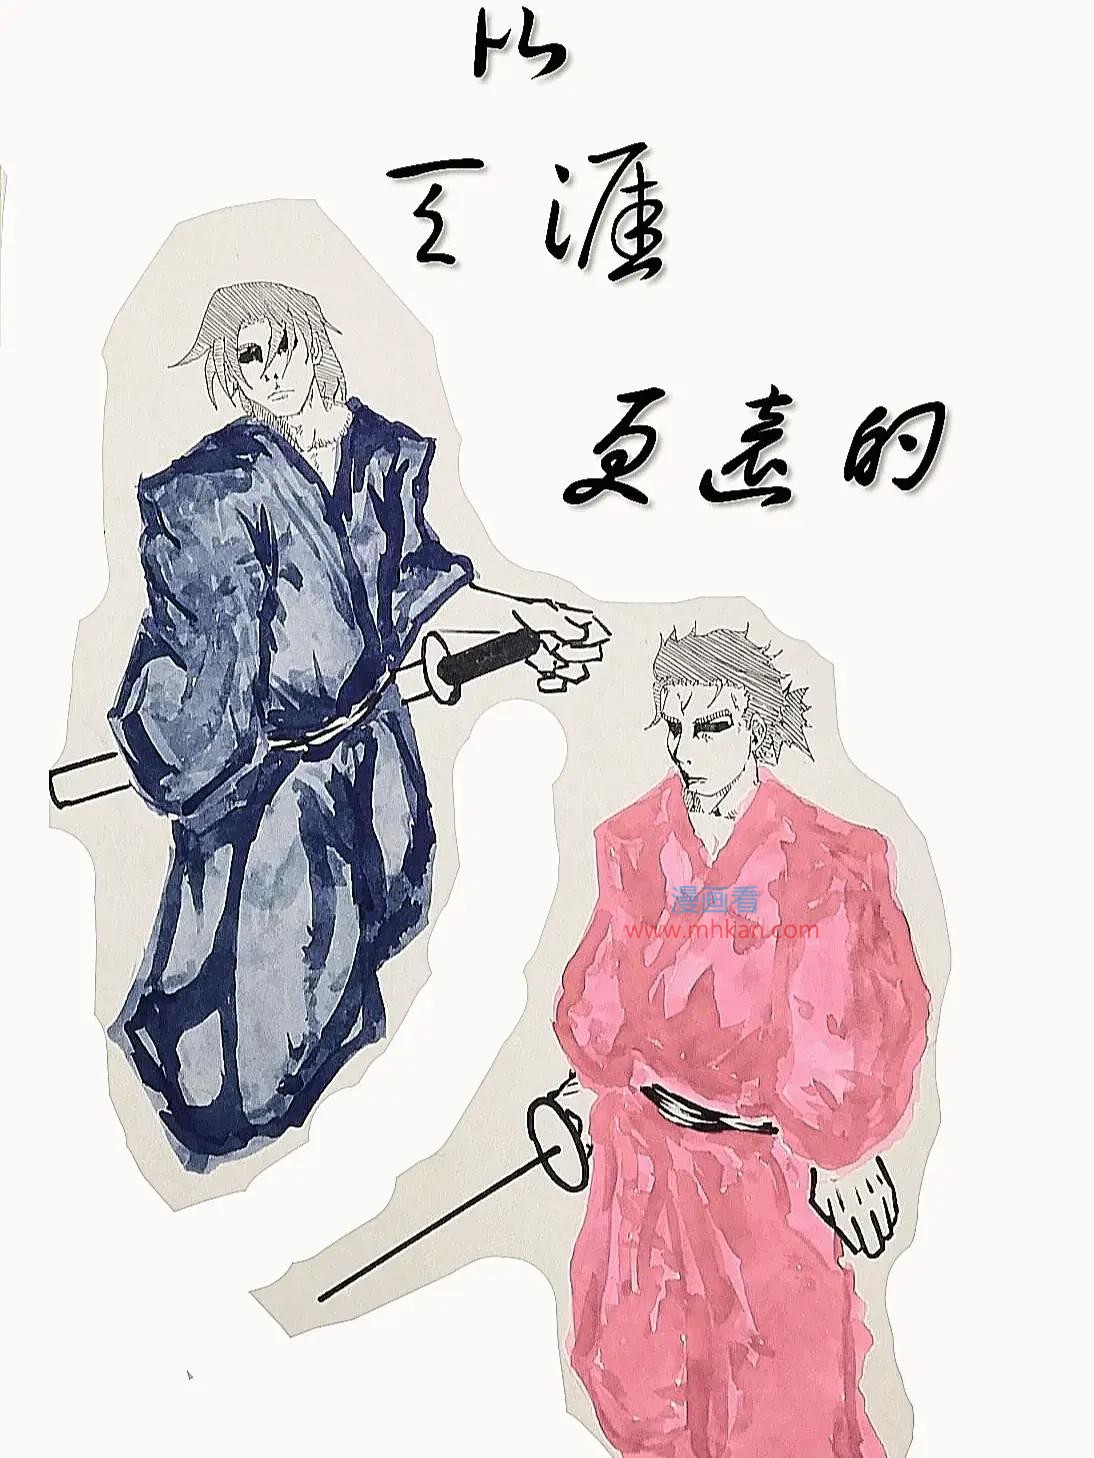 比
天涯
更遠的
漫画看
www.mhkan.com